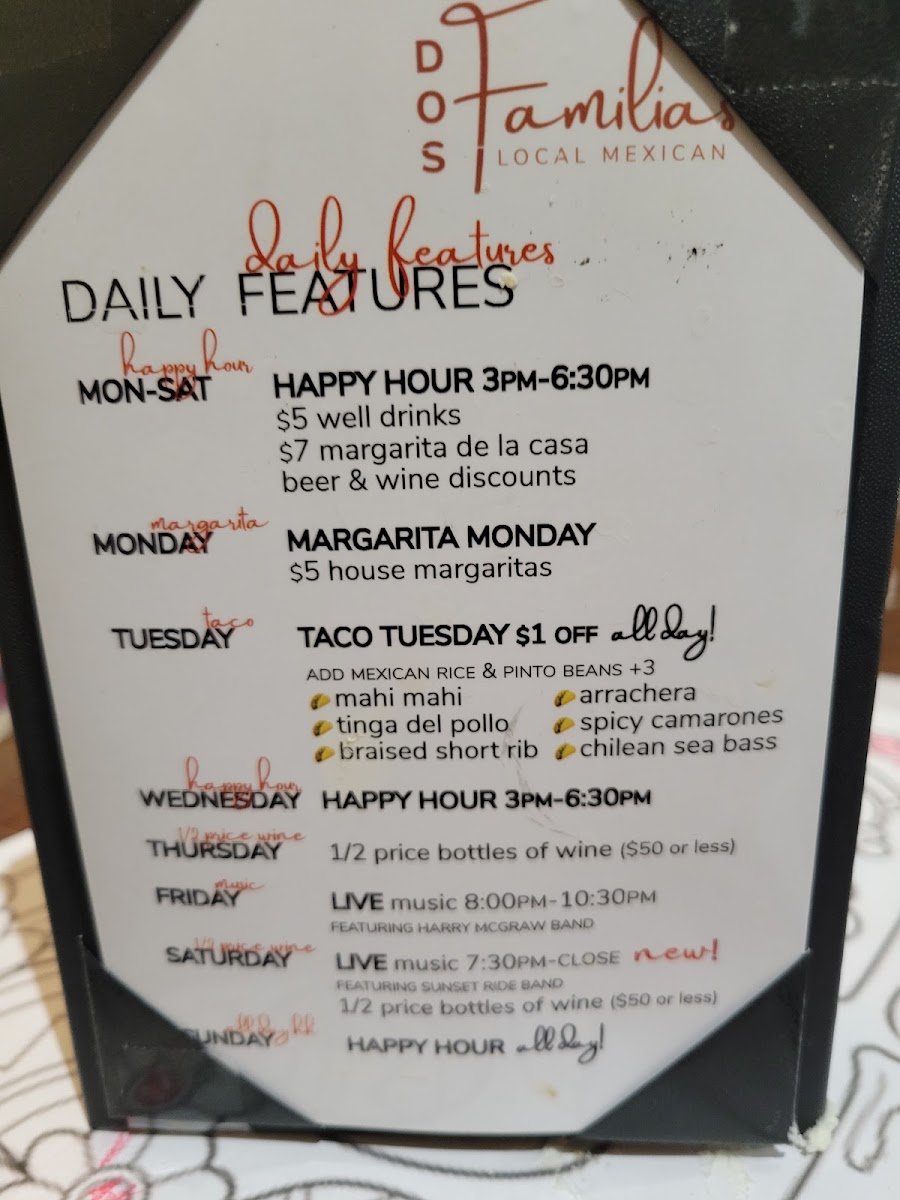 DOS Familias
LOCAL MEXICAN
daily features
DAILY FEATURES
happy hour
MON-SAT HAPPY HOUR 3PM-6:30PM
$5 well drinks
$7 margarita de la casa
beer & wine discounts
margarita
MONDAY MARGARITA MONDAY
$5 house margaritas
taco
TUESDAY TACO TUESDAY $1 OFF all day!
ADD MEXICAN RICE & PINTO BEANS +3
mahi mahi arrachera
tinga del pollo spicy camarones
braised short rib chilean sea bass
happy hour
WEDNESDAY HAPPY HOUR 3PM-6:30PM
1/2 price wine
THURSDAY 1/2 price bottles of wine ($50 or less)
music
FRIDAY LIVE music 8:00PM-10:30PM
FEATURING HARRY MCGRAW BAND
1/2 price wine
SATURDAY LIVE music 7:30PM-CLOSE new!
FEATURING SUNSET RIDE BAND
1/2 price bottles of wine ($50 or less)
SUNDAY HAPPY HOUR all day!